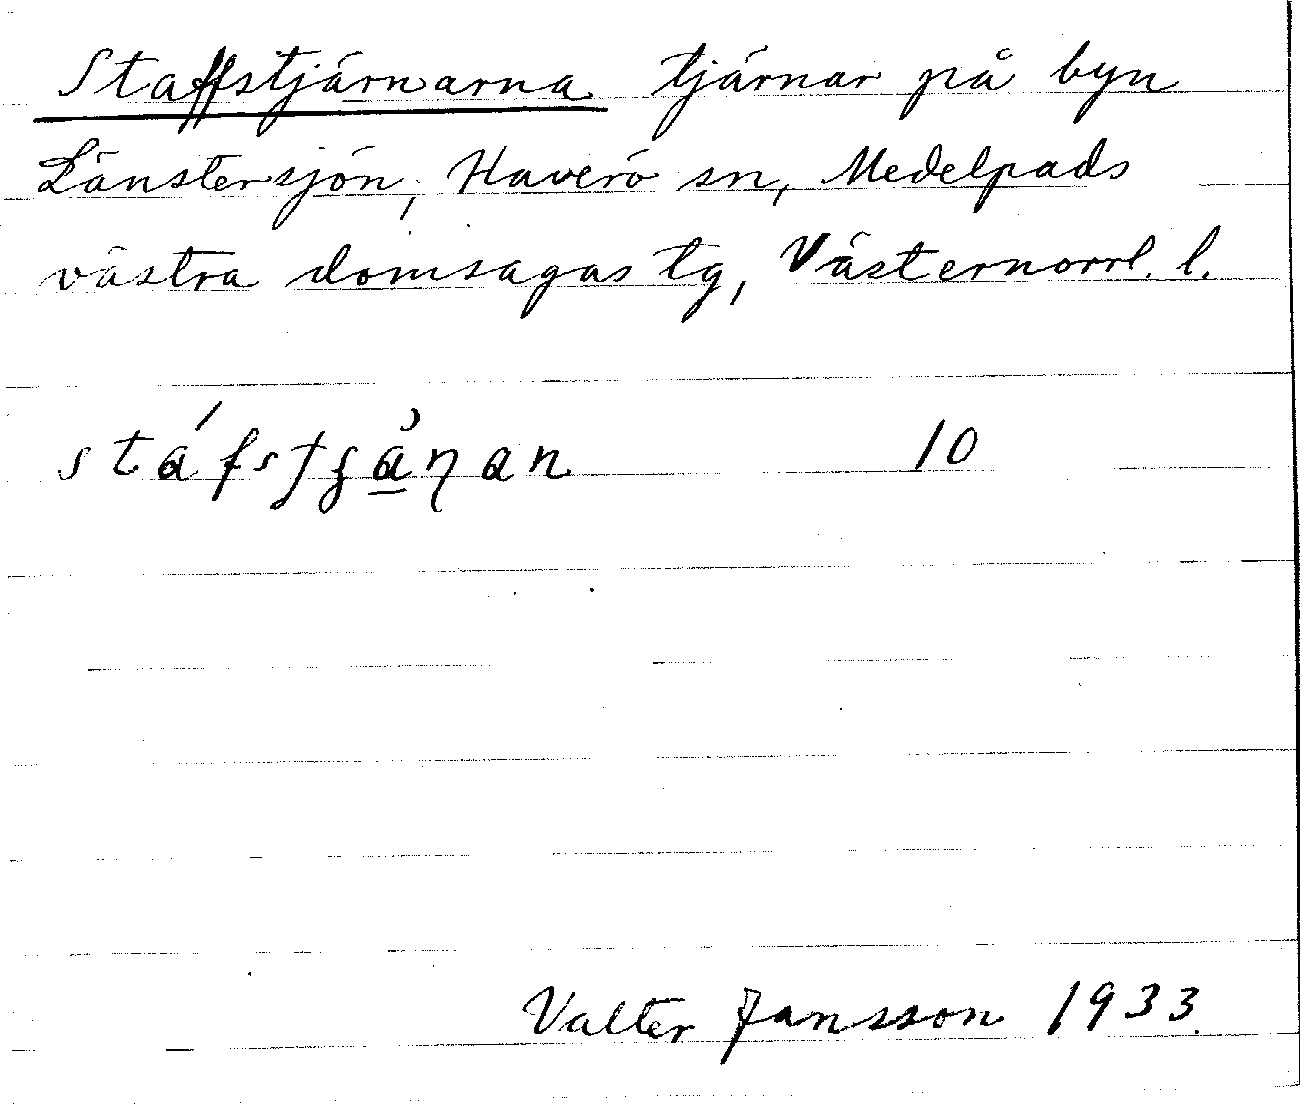 Staffstjärnarna tjärnar på byn
Länstersjön, Haverö sn, Medelpads
västra domsagas tg, Västernorrl. l.
10
Valter Jansson 1933.